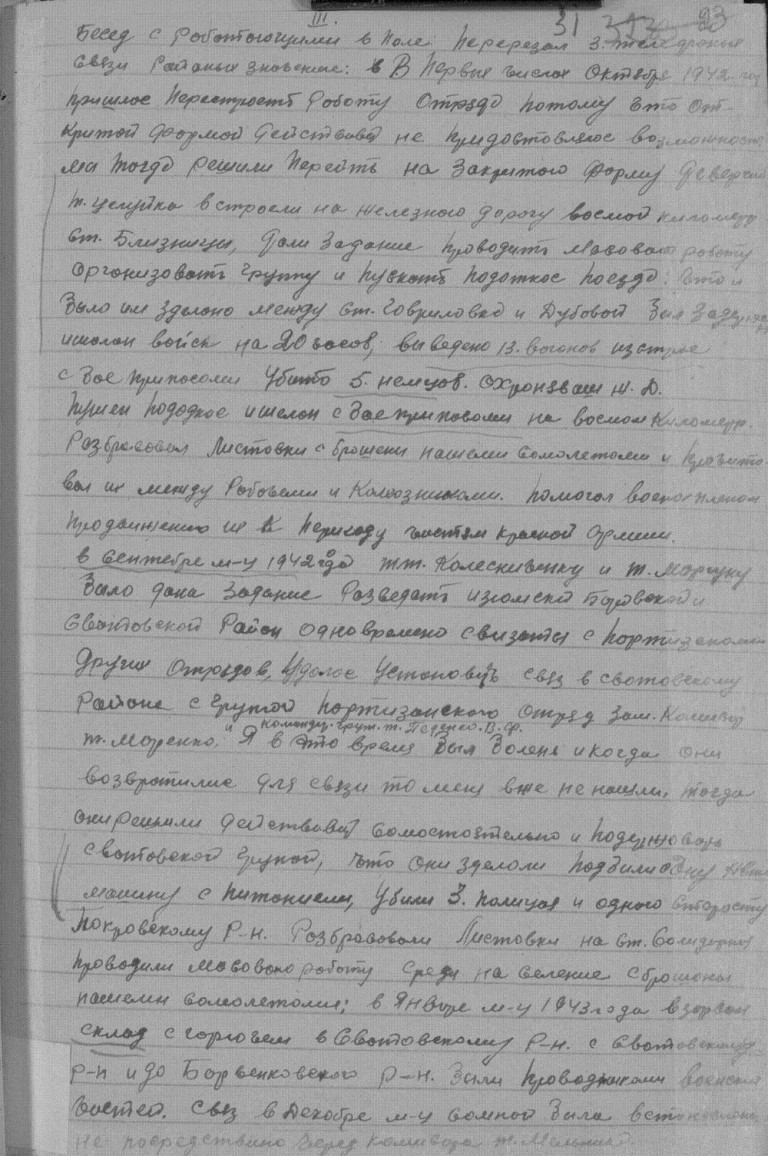 III.
31 93
Бесед с роботоющими в поле. Перерезал 3. телефоных
связи Районых значение: В Первых числах Октября 1942 год
пришлос Перестроеть роботу Отряда потому что От-
критой формой действоват не придоставлялос возможность
мы тогда решили Перейти на Закритого форму
т. встроели на железного дорогу восмой километр
ст. Близници, дали Задание проводить масовою роботу
организовать групу и пускать подоткос поезда: что и
было им зделано между ст. Говриловка и Дубовой был
ишалон войск на 20 часов, выведено 13. вогонов изстроя
с боеприпосоми убито 5. немцов. охронявши ж. д.
пущен пододкос ишелон с боеприпосоми на восмом километре.
Розбросовал Листовки с брошены нашеми сомолетоми и
вал их между Робочеми и Колхозникоми. помогал военопленом
продвижению их к переходу частям красной армии.
в сентебре м-ц 1942 года т.т. Колесниченку и т. Моргуну
было дана Задание Розведать изюмский Боровской и
Сватовской Район одновремено связатся с портизаноми
других Отрядов, Удалос Установить связ в сватовскому
Районе с групой портизанского отряд Зам. Комисар
т. Моренко, и командир. груп. т. В. Ф. Я в это время был болен и когда они
возвратилис для связи то меня вже не нашли, тогда
они решили действоват самостоятельно и
сватовской групой, что они зделоли подбили одну
машину с питонием, убили 3. полицая и одного старосту
Покровскому р-н. Розбросовали Листовки на ст.
проводили масовою роботу среди население сброшоны
нашеми самолетоми; в Январе м-ц 1943 года взорвали
склад с горючем в Сватовскому р-н. с Сватовского
р-н и до Борвенковского р-н. были проводникоми воинских
частей. связ в Декобре м-ц самной была встоновлена
не посредствино через комисара т.